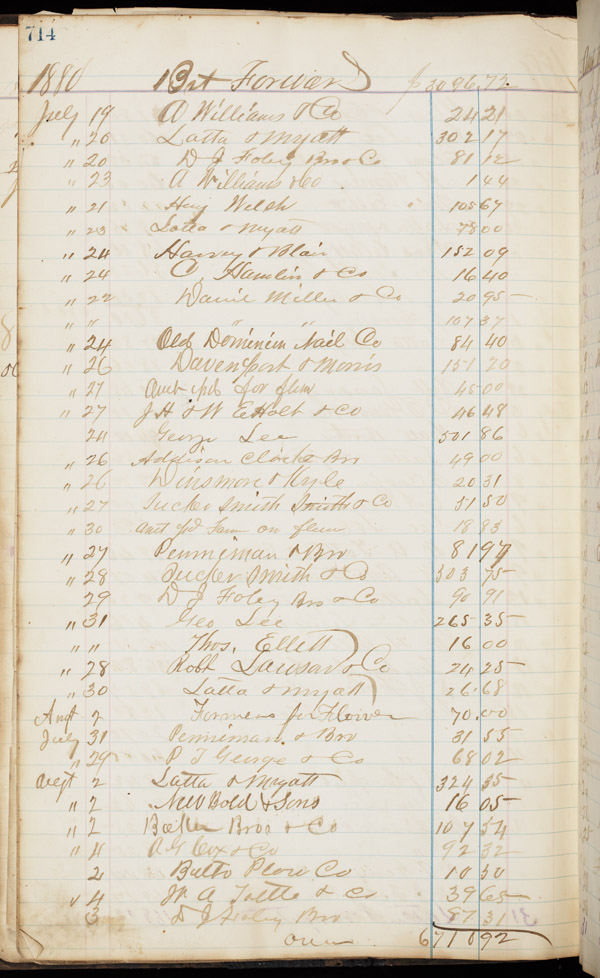 714
1880 Bot Forward $ 3096.72
July 19 A Williams & Co 24 21
" 20 Latta & Myatt 302 17
" 20 D J Foley Bro & Co 81 12
" 23 A Williams & Co 1 44
" 21 Welsh 105 67
" 23 Latta & Myatt 78 00
" 24 Harvey & Blair 152 09
" 24 C. Hamlin & Co 16 40
" 22 Daniel Miller & Co 20 95
" " " " 107 37
" 24 Old Dominion Nail Co 84 40
" 26 Davenport & Morris 151 20
" 27 Amt pd for flour 45 00
" 27 J H & W E Holt & Co 46 48
24 George Lee 501 86
" 26 Addison Clarke Bro 49 00
" 26 Winsmore & Kyle 20 31
" 27 Tucker Smith Smith & Co 51 50
" 30 Amt pd on flour 18 83
" 27 Penniman & Bro 81 97
" 28 Tucker Smith & Co 303 75
29 D J Foley Bro & Co 90 91
" 31 Geo Lee 265 35
" " Thos. Ellett 16 00
" 28 Robt & Co 24 25
" 30 Latta & Myatt 26.68
Augt 2 Farmers for Flour 70.00
July 31 Penniman & Bro 31 55
" 29 P T George & Co 68 02
Augt 2 Latta & Myatt 324 35
" 2 Bold & Sons 16 05
" 2 Bros & Co 107 54
" 4 A G Cox & Co 92 32
2 Balto Plow Co 10 30
" 4 A Tuttle & Co 39 65
3 D J Foley Bro 87 31
over 6710 92